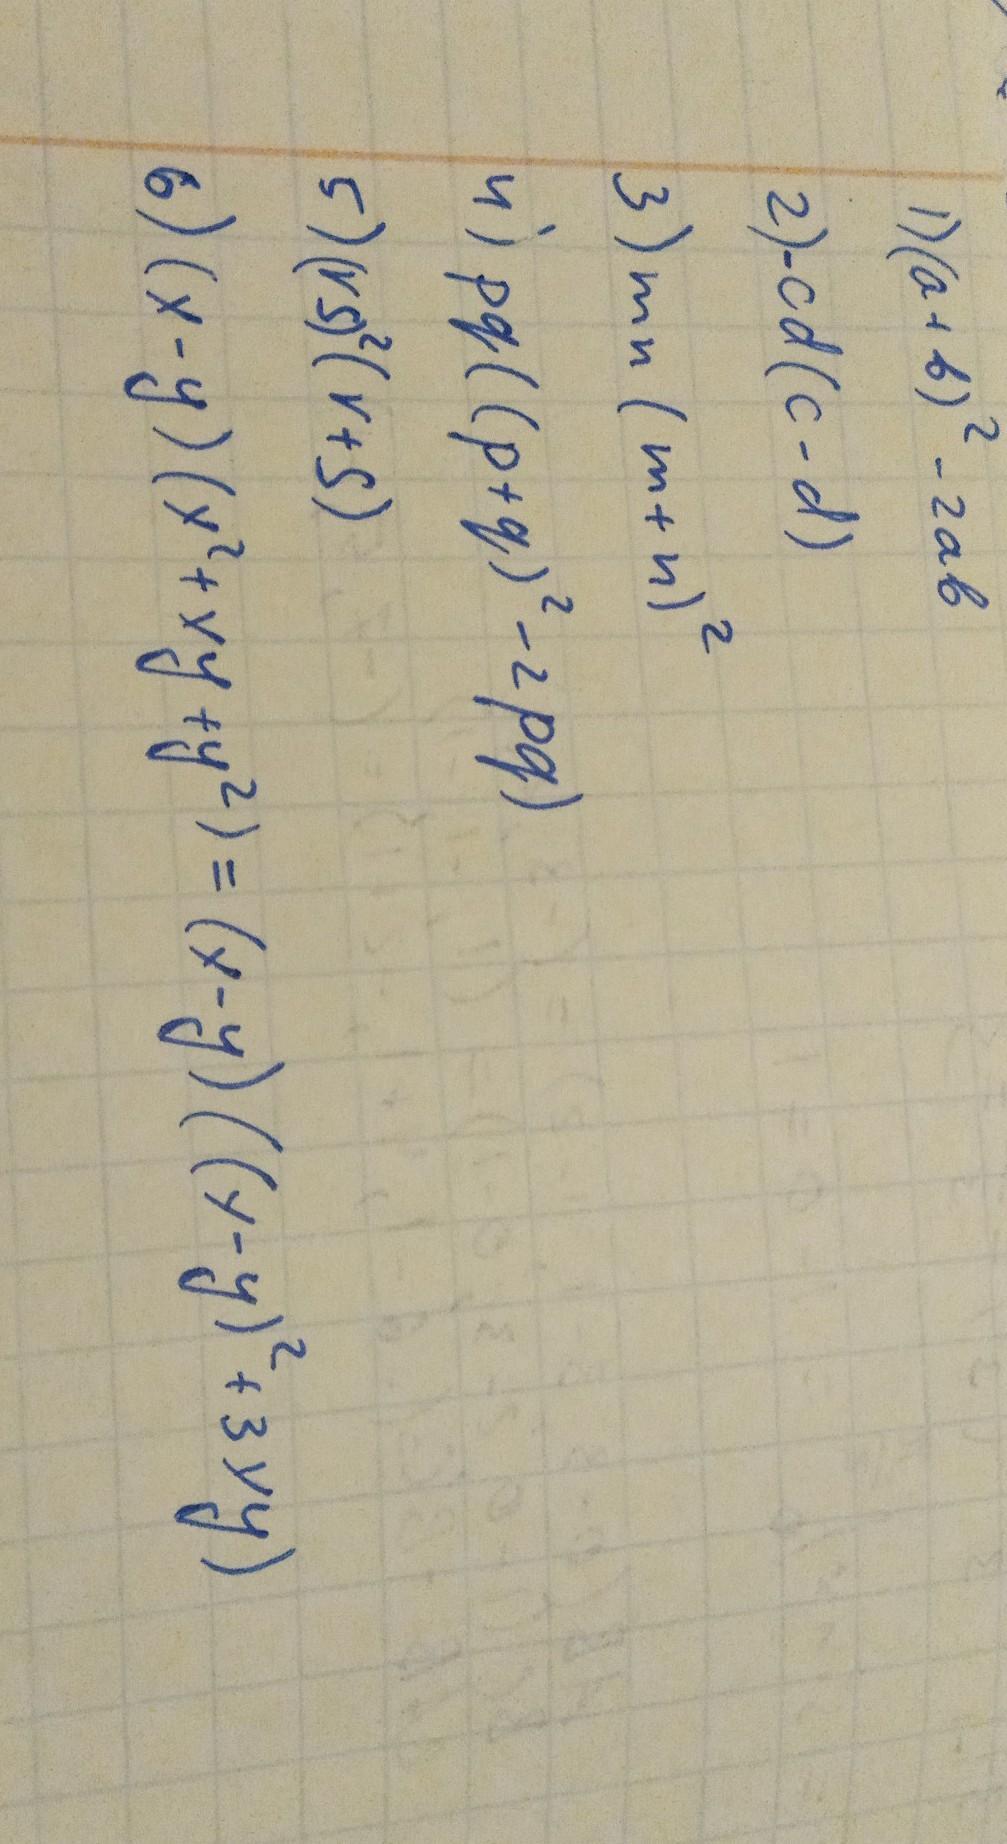 1)(a+b)²-2ab
2)-cd(c-d)
3) mn(m+n)²
4) pq((p+q)²-2pq)
5)(rs)²(r+s)
6)(x-y)(x²+xy+y²)=(x-y)((x-y)²+3xy)